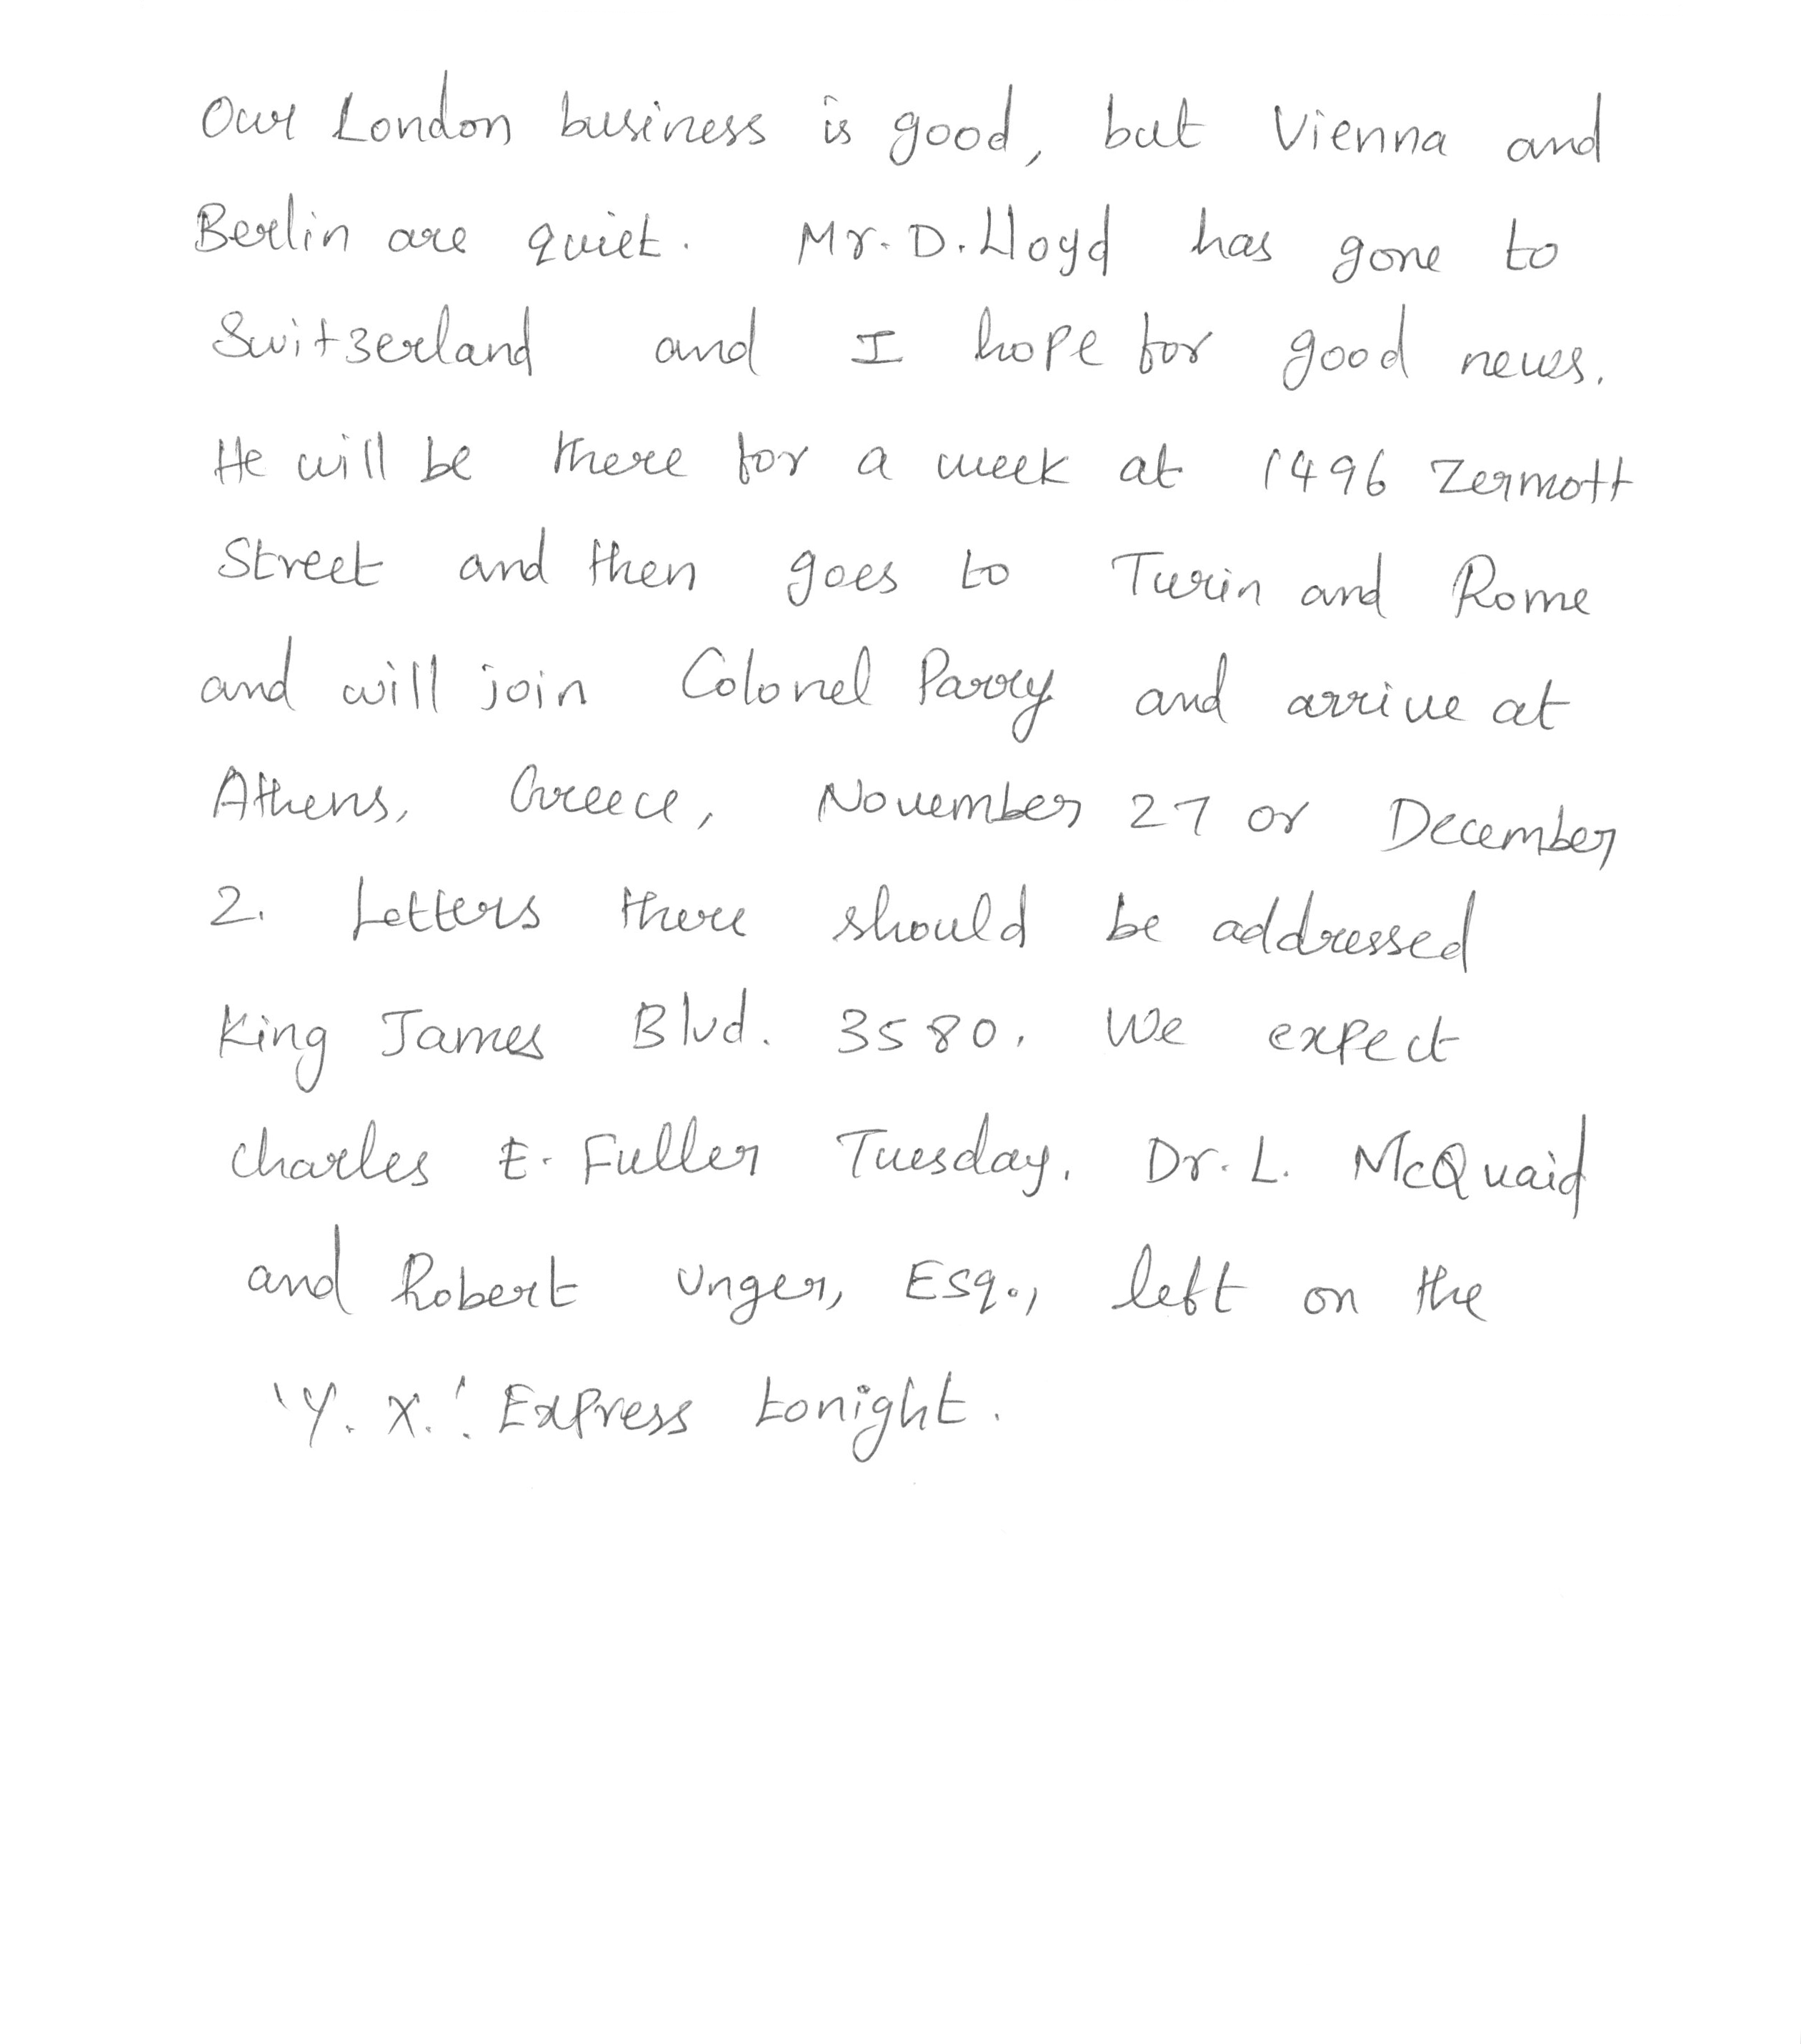 Our London business is good, but Vienna and
Berlin are quiet. Mr. D. Lloyd has gone to
Switzerland and I hope for good news.
He will be there for a week at 1496 Zermott
Street and then goes to Turin and Rome
and will join Colonel Parry and arrive at
Athens, Greece, November 27 or December
2. Letters there should be addressed
King James Blvd. 3580. We expect
Charles E. Fuller Tuesday. Dr. L. McQuaid
and Robert Unger, Esq., left on the
'Y. X.' Express tonight.